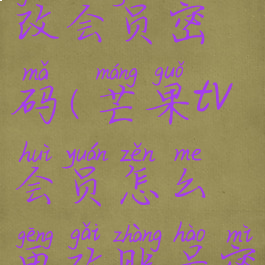 改会员密
mǎ máng guǒ
码(芒果tv
huì yuán zěn me
会员怎么
gēng gǎi zhàng hào mì
更改账号密